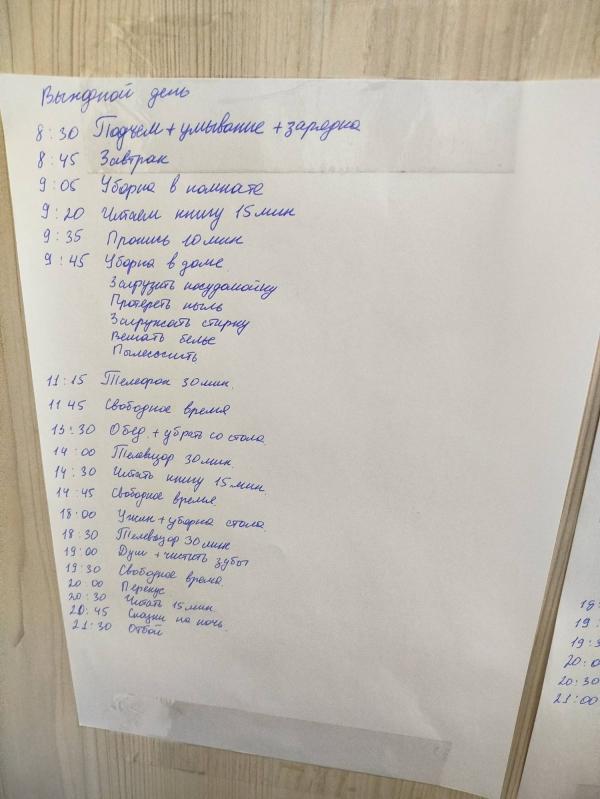 Выходной день
8:30 Подъем + умывание + зарядка
8:45 Завтрак
9:05 Уборка в комнате
9:20 Читаем книгу 15 мин
9:35 Пропись 10 мин
9:45 Уборка в доме
Загрузить посудомойку
Протереть пыль
Загружать стирку
Вешать белье
Пылесосить
11:15 Телефон 30 мин.
11 45 Свободное время
13:30 Обед + убрать со стола
14:00 Телевизор 30 мин.
14:30 Читать книгу 15 мин
14:45 Свободное время
18:00 Ужин + уборка стола
18:30 Телевизор 30 мин
19:00 Душ + чистить зубы
19:30 Свободное время
20:00 Перекус
20:30 Читать 15 мин
20:45 Сказки на ночь
21:30 Отбой
19:
19:3
20:0
20:30
21:00